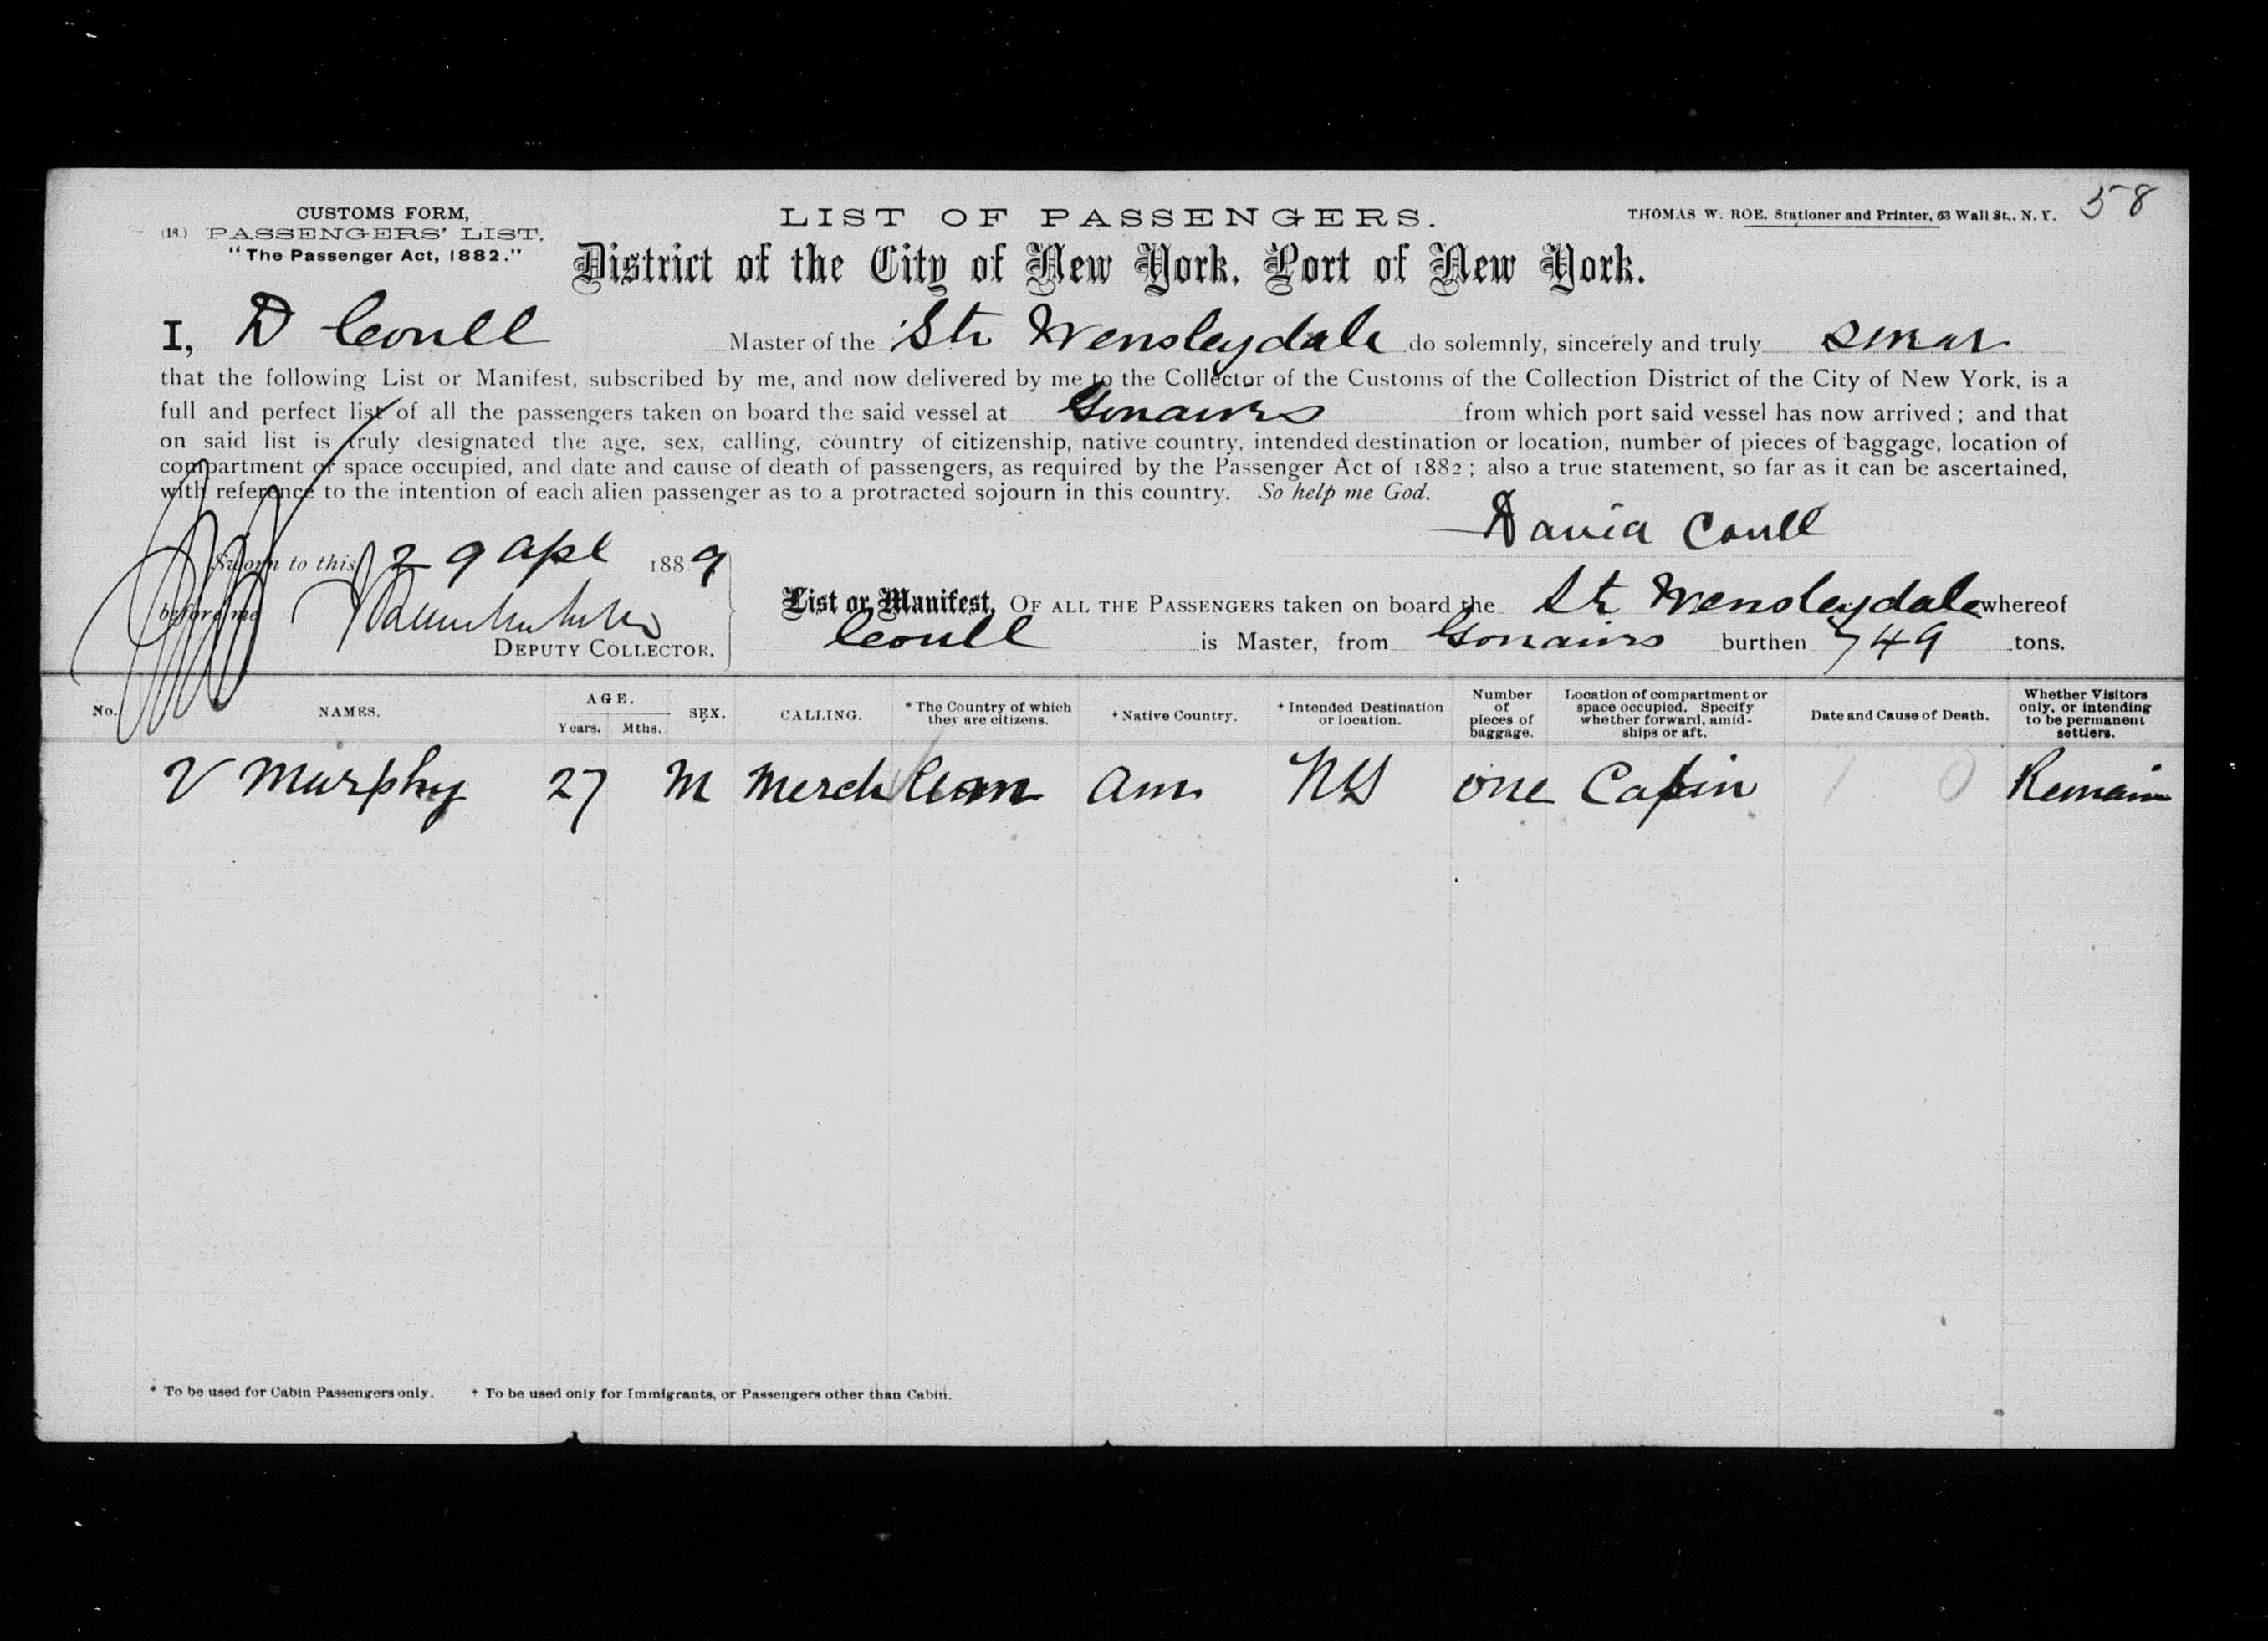 58
CUSTOMS FORM,
(18.) PASSENGERS' LIST.
"The Passenger Act, 1882."
LIST OF PASSENGERS.
THOMAS W. ROE, Stationer and Printer, 63 Wall St., N. Y.
District of the City of New York, Port of New York.
I, D Coull Master of the Str Wensleydale do solemnly, sincerely and truly swear
that the following List or Manifest, subscribed by me, and now delivered by me to the Collector of the Customs of the Collection District of the City of New York, is a
full and perfect list of all the passengers taken on board the said vessel at Gonaives from which port said vessel has now arrived; and that
on said list is truly designated the age, sex, calling, country of citizenship, native country, intended destination or location, number of pieces of baggage, location of
compartment or space occupied, and date and cause of death of passengers, as required by the Passenger Act of 1882; also a true statement, so far as it can be ascertained,
with reference to the intention of each alien passenger as to a protracted sojourn in this country. So help me God.
David Coull
Sworn to this 29 Apl 1889
before me
DEPUTY COLLECTOR.
List or Manifest, OF ALL THE PASSENGERS taken on board the Str Wensleydale whereof
Coull is Master, from Gonaives burthen 749 tons.
No. NAMES. AGE. Years. Mths. SEX. CALLING. * The Country of which they are citizens. + Native Country. + Intended Destination or location. Number of pieces of baggage. Location of compartment or space occupied. Specify whether forward, amidships or aft. Date and Cause of Death. Whether Visitors only, or intending to be permanent settlers.
V Murphy 27 M Merch Am Am NY one Cabin 1 0 Remain
* To be used for Cabin Passengers only. + To be used only for Immigrants, or Passengers other than Cabin.